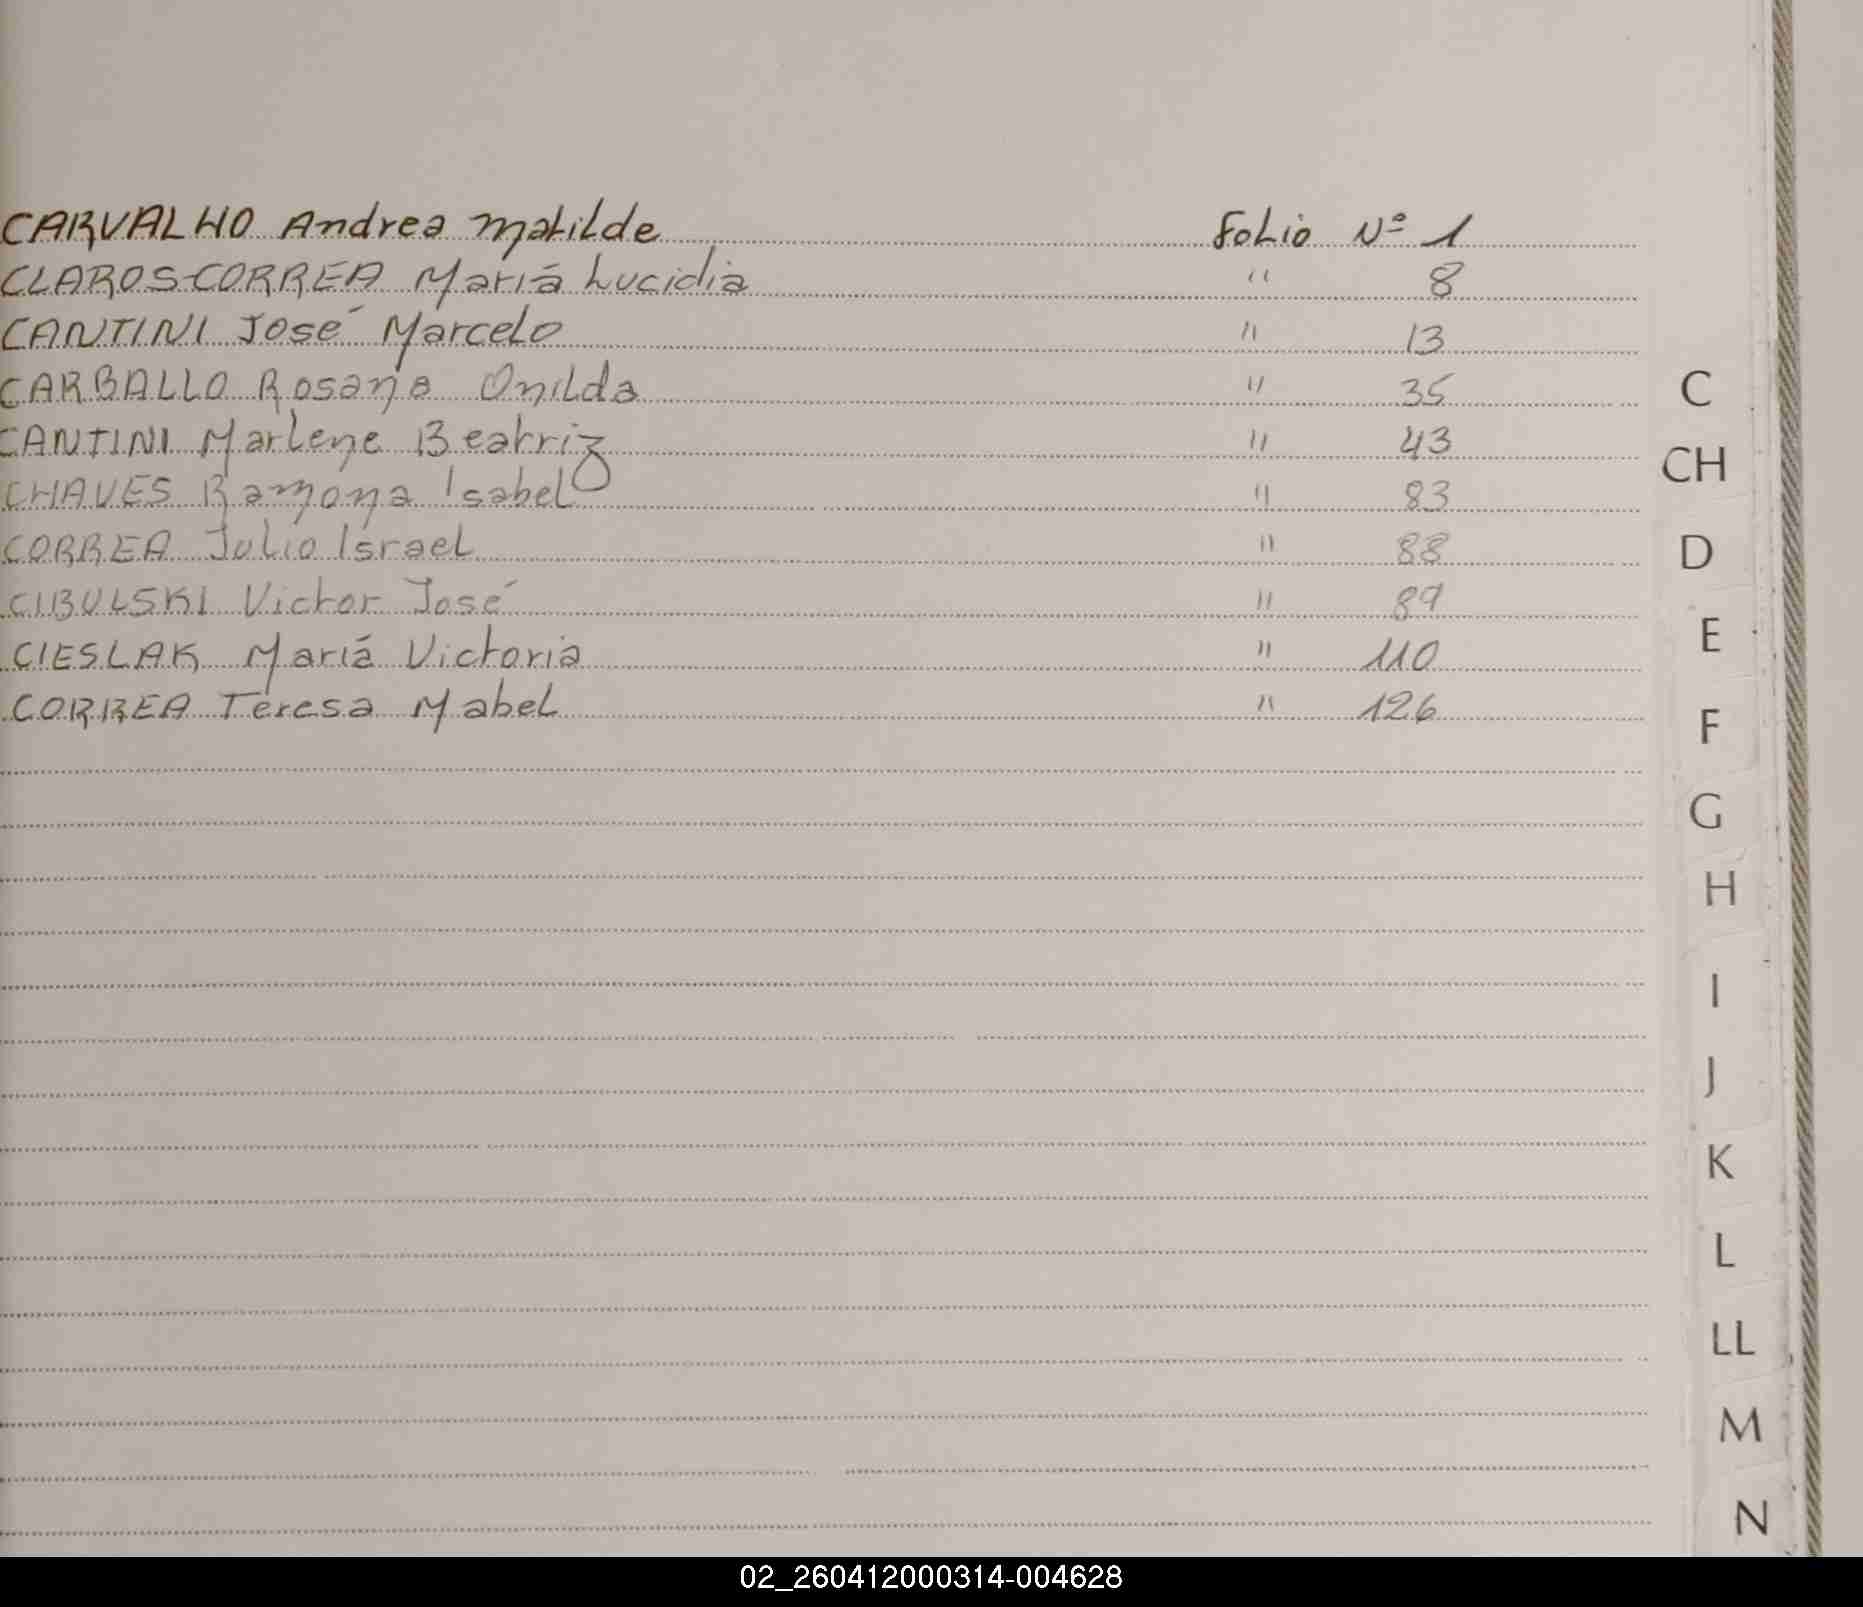 CARVALHO Andrea Matilde Folio Nº 1
CLAROS-CORREA Mariá Lucidia " 8
CANTINI José Marcelo " 13
CARBALLO Rosana Onilda " 35
CANTINI Marlene Beatriz " 43
CHAVES Ramona Isabel " 83
CORREA Julio Israel " 88
CIBULSKI Victor José " 89
CIESLAK Mariá Victoria " 110
CORREA Teresa Mabel " 126
C
CH
D
E
F
G
H
I
J
K
L
LL
M
N
02_260412000314-004628